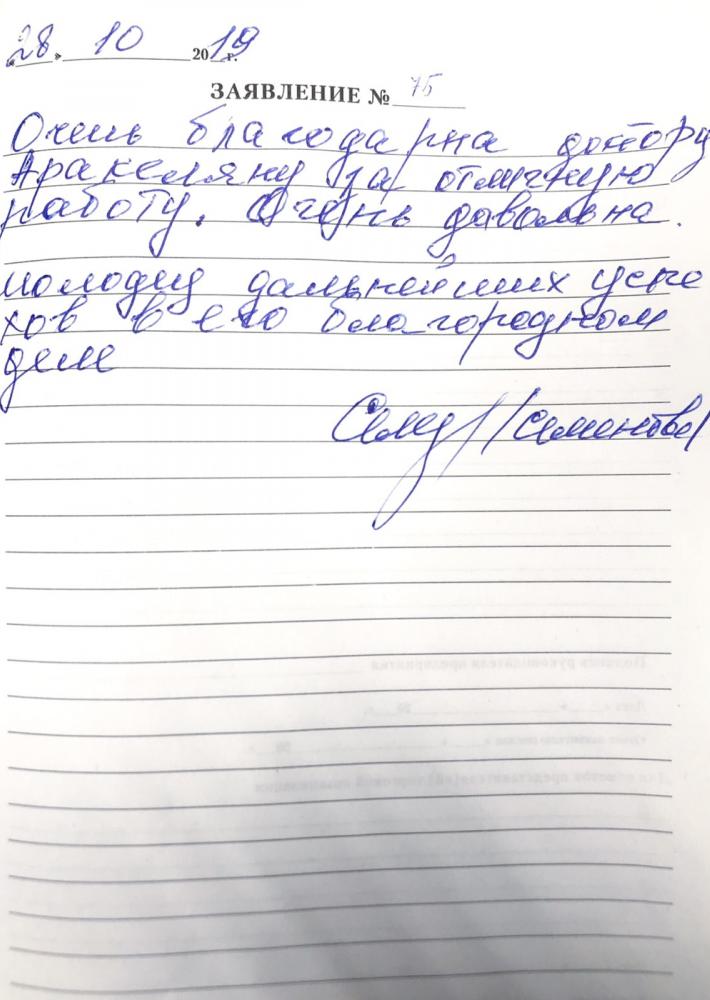 «28» 10 2019 г.
ЗАЯВЛЕНИЕ № 75
Очень благодарна доктору
Аракеляну за отличную
работу. Очень давольна.
молодец дальнейших успе
хов в его благородном
деле
/Семенова/